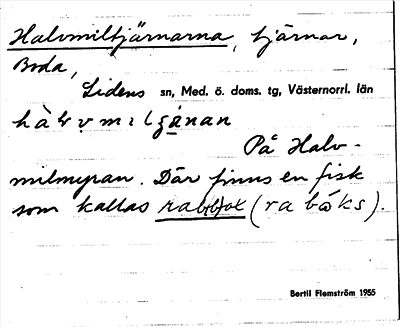 Halvmiltjärnarna, tjärnar,
Boda,
Lidens sn, Med. ö. doms. tg, Västernorrl. län
På Halv-
milmyran. Där finns en fisk
som kallas
Bertil Flemström 1955